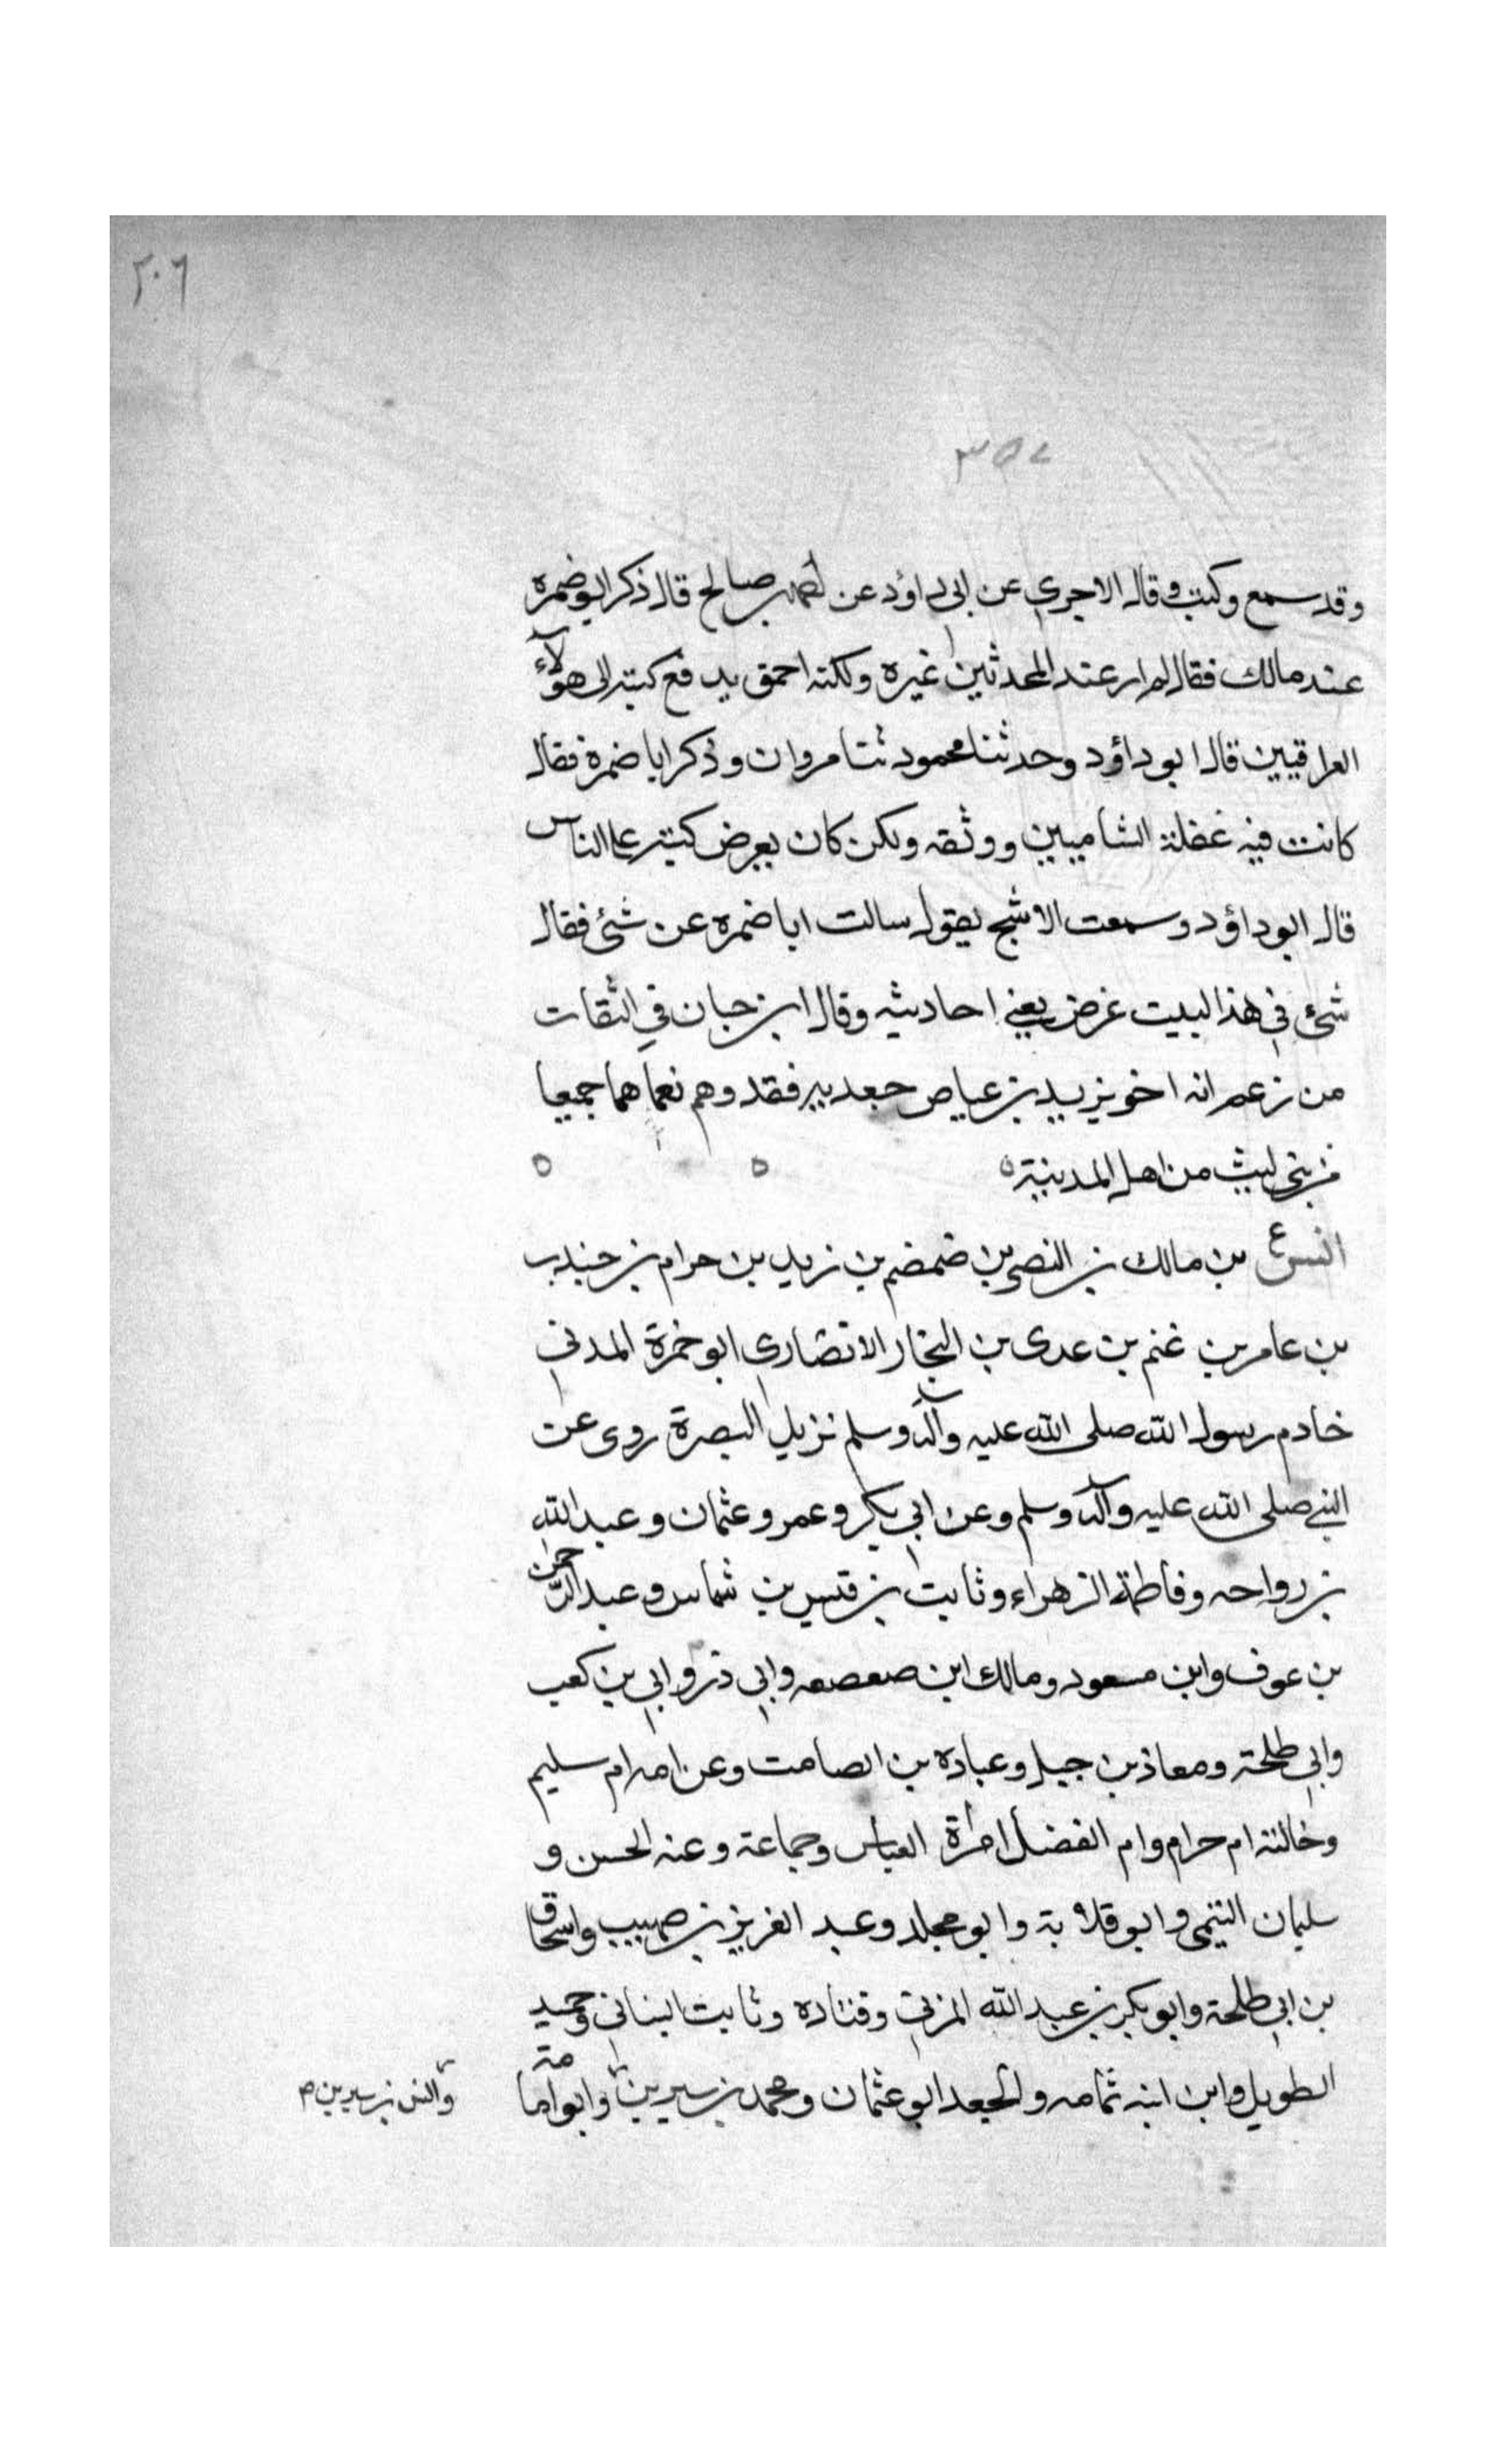 ٢٠٦
٣٥٧
وقد سمع وكتب وقال الاجري عن ابي داؤد عن احمد بن صالح قال ذكر ابو ضمره
عند مالك فقال لم ار عند المحدثين غيره ولكنه احمق يدفع كتبه الى هؤلاء
العراقيين قال ابو داؤد وحدثنا محمود ثنا مروان وذكر ابا ضمرة فقال
كانت فيه غفلة الشاميين ووثقه ولكن كان يعرض كتبه على الناس
قال ابو داؤد وسمعت الاشج يقول سالت ابا ضمره عن شئ فقال
شئ في هذا لبيت عرض يعني احاديثه وقال ابن حبان في الثقات
من زعم انه اخو يزيد بن عياض جعدبه فقد وهم نعم هما جميعا
من بني ليث من اهل المدينة ه ه ه
انس ع بن مالك بن النضر بن ضمضم بن زيد بن حرام بن جندب
بن عامر بن غنم بن عدى بن النجار الانصاري ابو حمزة المدني
خادم رسول الله صلى الله عليه وآله وسلم نزيل البصرة روى عن
النبي صلى الله عليه وآله وسلم وعن ابي بكر وعمر وعثمان وعبد الله
بن رواحه وفاطمة الزهراء وثابت بن قيس بن شماس وعبد الرحمن
بن عوف وابن مسعود ومالك ابن صعصعه وابي ذر وابي بن كعب
وابي طلحة ومعاذ بن جبل وعباده بن الصامت وعن امه ام سليم
وخالته ام حرام وام الفضل امرأة العباس وجماعة وعنه الحسن و
سليمان التيمي وابو قلابة وابو مجلد وعبد العزيز بن صهيب واسحاق
بن ابي طلحة وابو بكر بن عبد الله المزني وقتاده وثابت البناني وحميد
الطويل وابن ابنه ثمامه والجعد ابو عثمان ومحمد بن سيرين وابو امامة
وانس بن سيرين م